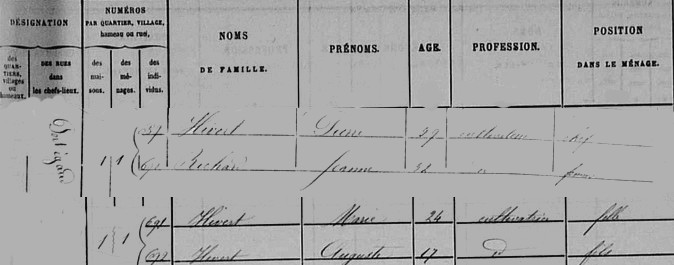 DÉSIGNATION
NUMÉROS
PAR QUARTIER, VILLAGE,
hameau ou rue,
NOMS
DE FAMILLE.
PRÉNOMS.
AGE.
PROFESSION.
POSITION
DANS LE MÉNAGE.
des
QUAR-
TIERS,
villages
ou
hameaux.
DES RUES
dans
les chefs-lieux.
des
mai-
sons.
des
mé-
nages.
des
indi-
vidus.
Hévert Pierre 29 cultivateur chef
1 1 Richard Jeanne d
691 Hévert Marie 24 cultivatrice fille
1 1 692 Hévert Auguste 17 d fils